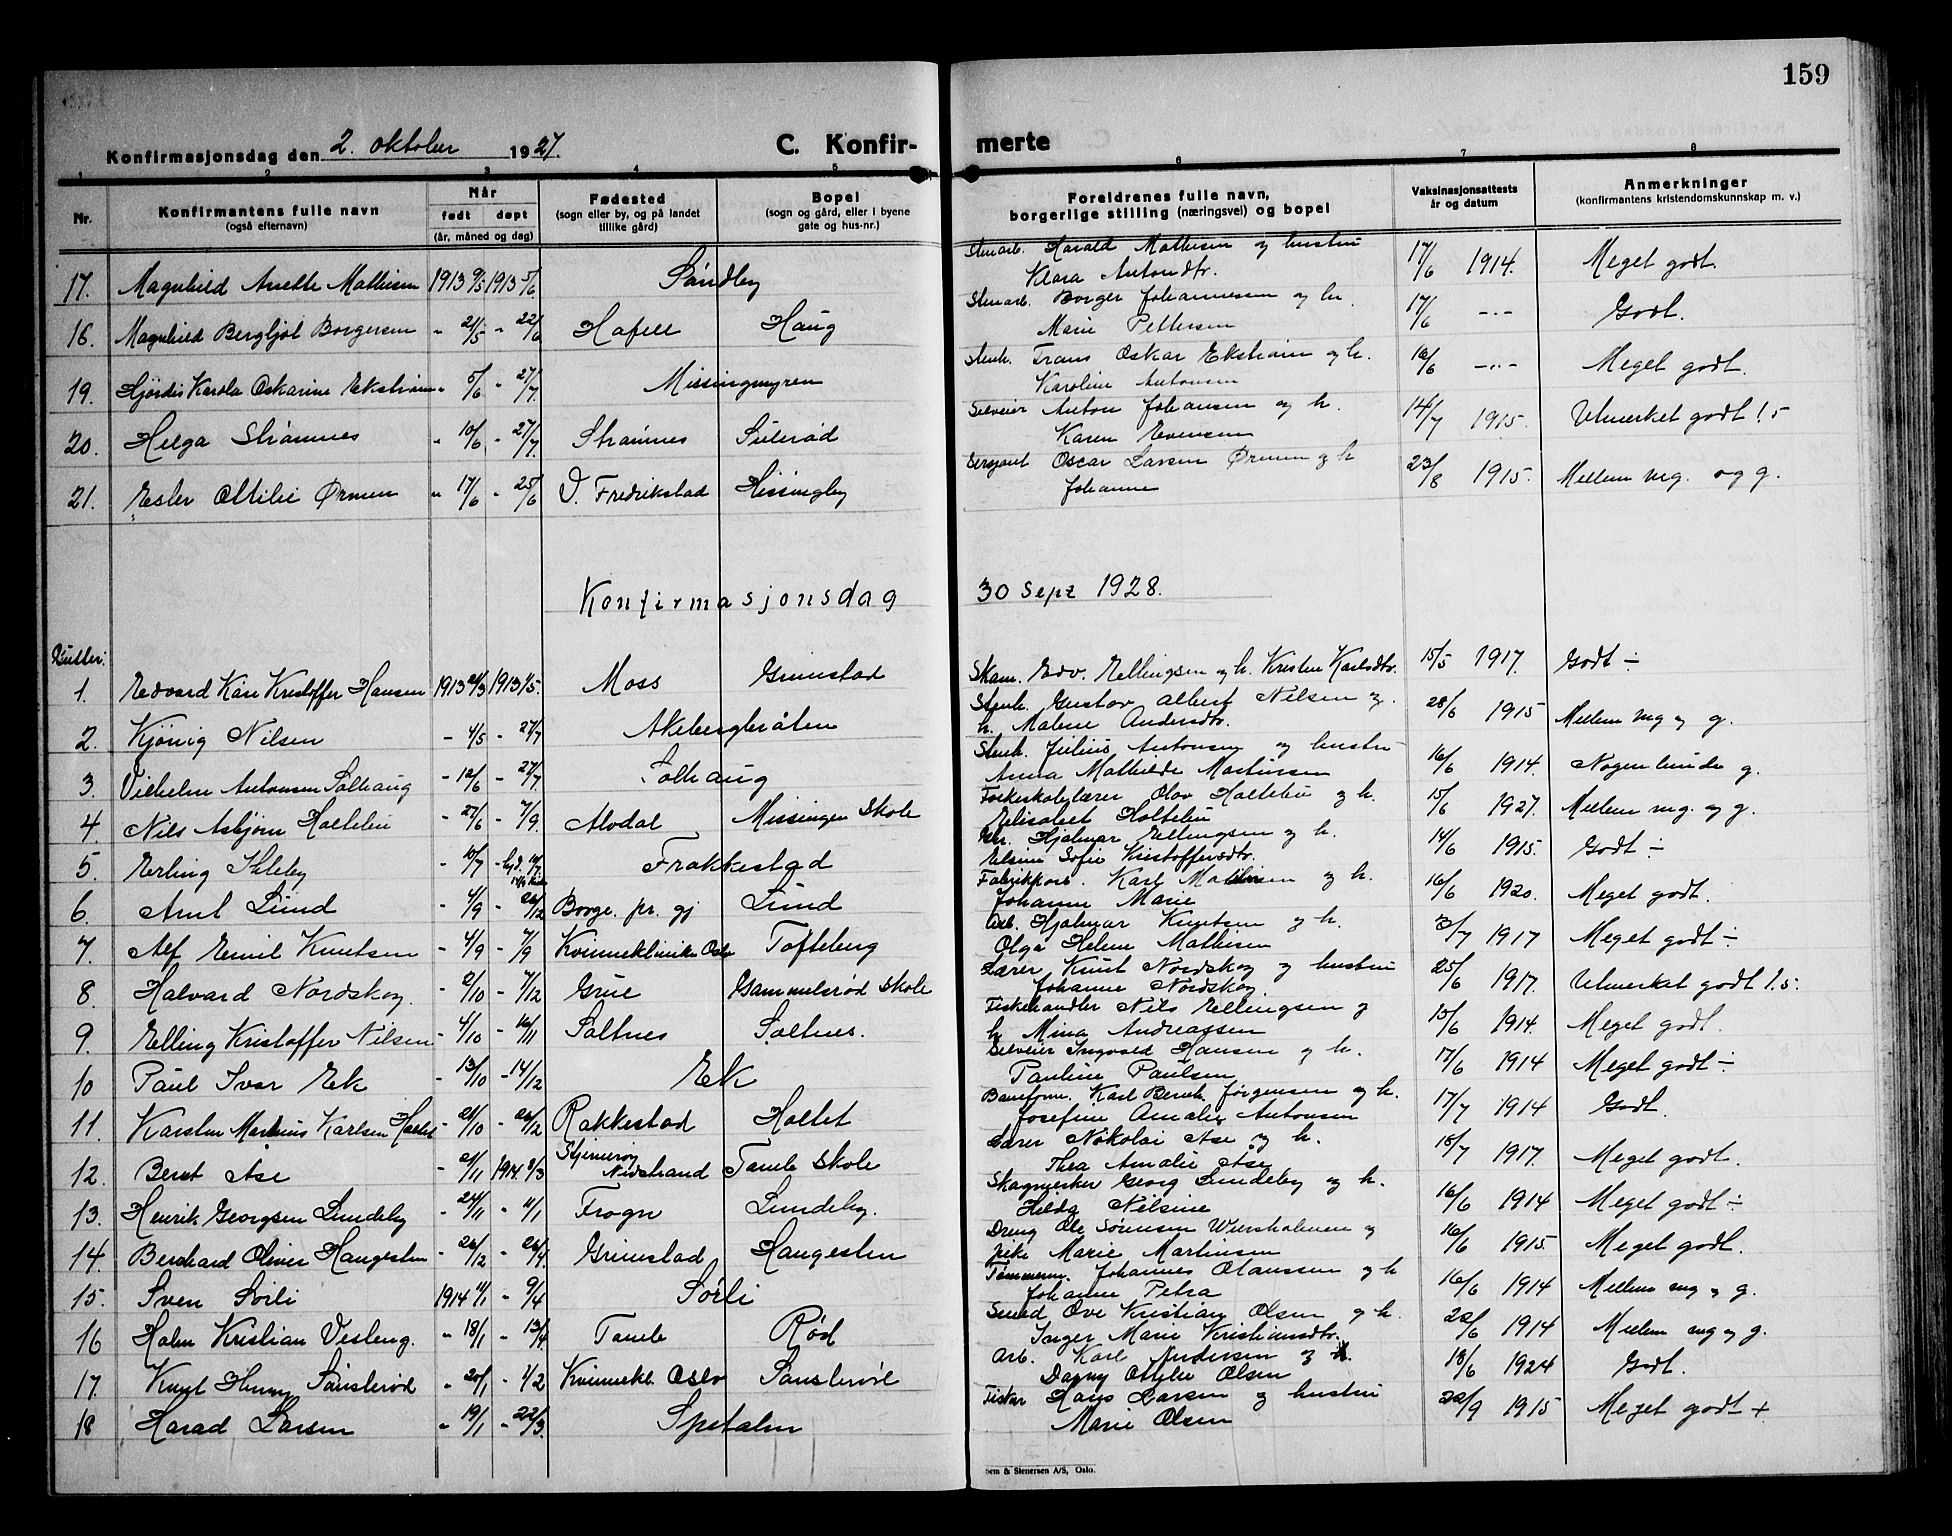 159
Konfirmasjonsdag den 2. oktober 1927. C. Konfir-merte
1 2 3 4 5 6 7 8
Nr. Konfirmantens fulle navn (også efternavn) Når født døpt (år, måned og dag) Fødested (sogn eller by, og på landet tillike gård) Bopel (sogn og gård, eller i byene gate og hus-nr.) Foreldrenes fulle navn, borgerlige stilling (næringsvei) og bopel Vaksinasjonsattests år og datum Anmerkninger (konfirmantens kristendomskunnskap m. v.)
17. Magnhild Anette Mathisen 1913 9/5 1913 5/6 Sundby Stenarb. Harald Mathisen og hustru Klara Antondtr. 17/6 1914. Meget godt.
16. Magnhild Bergljot Borgersen " 21/5 " 22/6 Hafell Haug Stenarb. Borger Johannessen og hu. Marie Pettersen 17/6 -"- Godt.
19. Hjördis Karola Oskarine Ekström " 5/6 " 27/7. Missingmyren Stenh. Frans Oskar Ekström og h. Karoline Antonsen 16/6 -"- Meget godt.
20. Helga Strömnes " 10/6 " 27/7. Strömnes Sulerød Selveier Anton Johansen og h. Karen Evensen 14/7 1915. Utmerket godt 1.5
21. Ester Otilie Ørmen " 17/6 " 25/6 V. Fredrikstad Missingby Sersjant Oscar Larsen Ørmen og h Johanne 23/8 1915. Mellem mg. og g.
Konfirmasjonsdag 30 Sept 1928.
Gutter:
1. Edvard Kåre Kristoffer Hansen 1913 24/3 1913 1/5. Moss Grimstad Skom. Edv. Ellingsen og h. Kristin Karlsdtr. 15/5 1917. Godt ÷
2. Kjönig Nilsen - 4/5 - 27/7 Akebergbråten Stenh. Gustav Albert Nilsen og h. Malene Andersdtr. 28/6 1915 Mellem mg og g.
3. Vilhelm Antonsen Solhaug - 12/6 - 27/7 Solhaug Stenh. Julius Antonsen og hustru Anna Mathilde Martinsen 16/6 1914. Nogenlunde g.
4. Nils Asbjörn Holteliu - 27/6 - 7/9. Alvdal Missingen Skole Folkeskolelærer Olov Holteliu og h. Elisabeth Holteliu 15/6 1927. Mellem mg. og g.
5. Erling Ihleby - 10/7 - hjd. 10/7. Frakkestad Hjalmar Ellingsen og h. Elsine Sofie Kristoffersdtr. 14/6 1915. Godt ÷
6. Arnt Lund - 4/9 - 26/12 Borge pr. gj Lund Fabrikkarb. Karl Mathisen og h. Johanne Marie 16/6 1920. Meget godt.
7. Alf Emil Knutsen - 4/9 - 7/9 Kvinneklinikk Oslo Tofteberg Arb. Hjalmar Knutsen og h. Olga Helene Mathisen 3/7 1917 Meget godt ÷
8. Halvard Nordskog. - 2/10 - 7/12 Grue Gammelsrød Skole Lærer Knut Nordskog og hustru Johanne Nordskog. 25/6 1917. Utmerket godt 1.5.
9. Elling Kristoffer Nilsen - 4/10 - 16/11 Saltnes Saltnes. Fiskehandler Nils Ellingsen og h. Mina Andreassen 15/6 1914. Meget godt.
10 Paul Ivar Ek - 13/10 - 14/12 Ek Selveier Ingvald Hansen og h. Pauline Paulsen 17/6 1914 Meget godt ÷
11. Karsten Markus Karlsen Holtet - 21/10 - 26/12 Rakkestad Holtet Baneform. Karl Bernh. Jørgensen og h. Josefine Amalie Antonsen 17/7 1914 Godt.
12. Bernt Ase - 21/11 1914. 8/3 Stjernerøy Nedstrand Tomb Skole Lærer Nikolai Ase og h. Thea Amalie Ase 15/7 1917. Meget godt.
13. Henrik Georgsen Lundeby - 24/11 - 11/1 Frogn Lundeby. Georg Lundeby og h. Hilda Nilsine 16/6 1914 Meget godt ÷
14. Bernhard Oliver Haugesten - 26/12 - 26/4. Grimstad Haugesten Dreng Ole Sørensen og pike Marie Martinsen 16/6 1915. Meget godt.
15. Sven Sörli 1914 11/1 - 9/4 Sörli Tømmerm. Johannes Olaussen og h Johanne Petra 16/6 1914 Mellem mg og g.
16 Holm Kristian Vesteng. " 18/1 - 13/4. Tomb Rød Smed Ove Kristian Olsen og h. Inger Marie Kristiansdtr. 22/6 1914 Mellem mg og g.
17. Knut Henry Sånslerød " 20/1 - 1/2 Kvinnekl. Oslo Sånslerød Arb. Karl Andersen og h. Dagny Ottilie Olsen 18/6 1924 Godt.
18 Harad Larsen " 19/1 " 22/3. Spetalen Fisker Hans Larsen og hustru Marie Olsen 22/9 1915 Meget godt +
Sem & Stenersen A/S, Oslo.